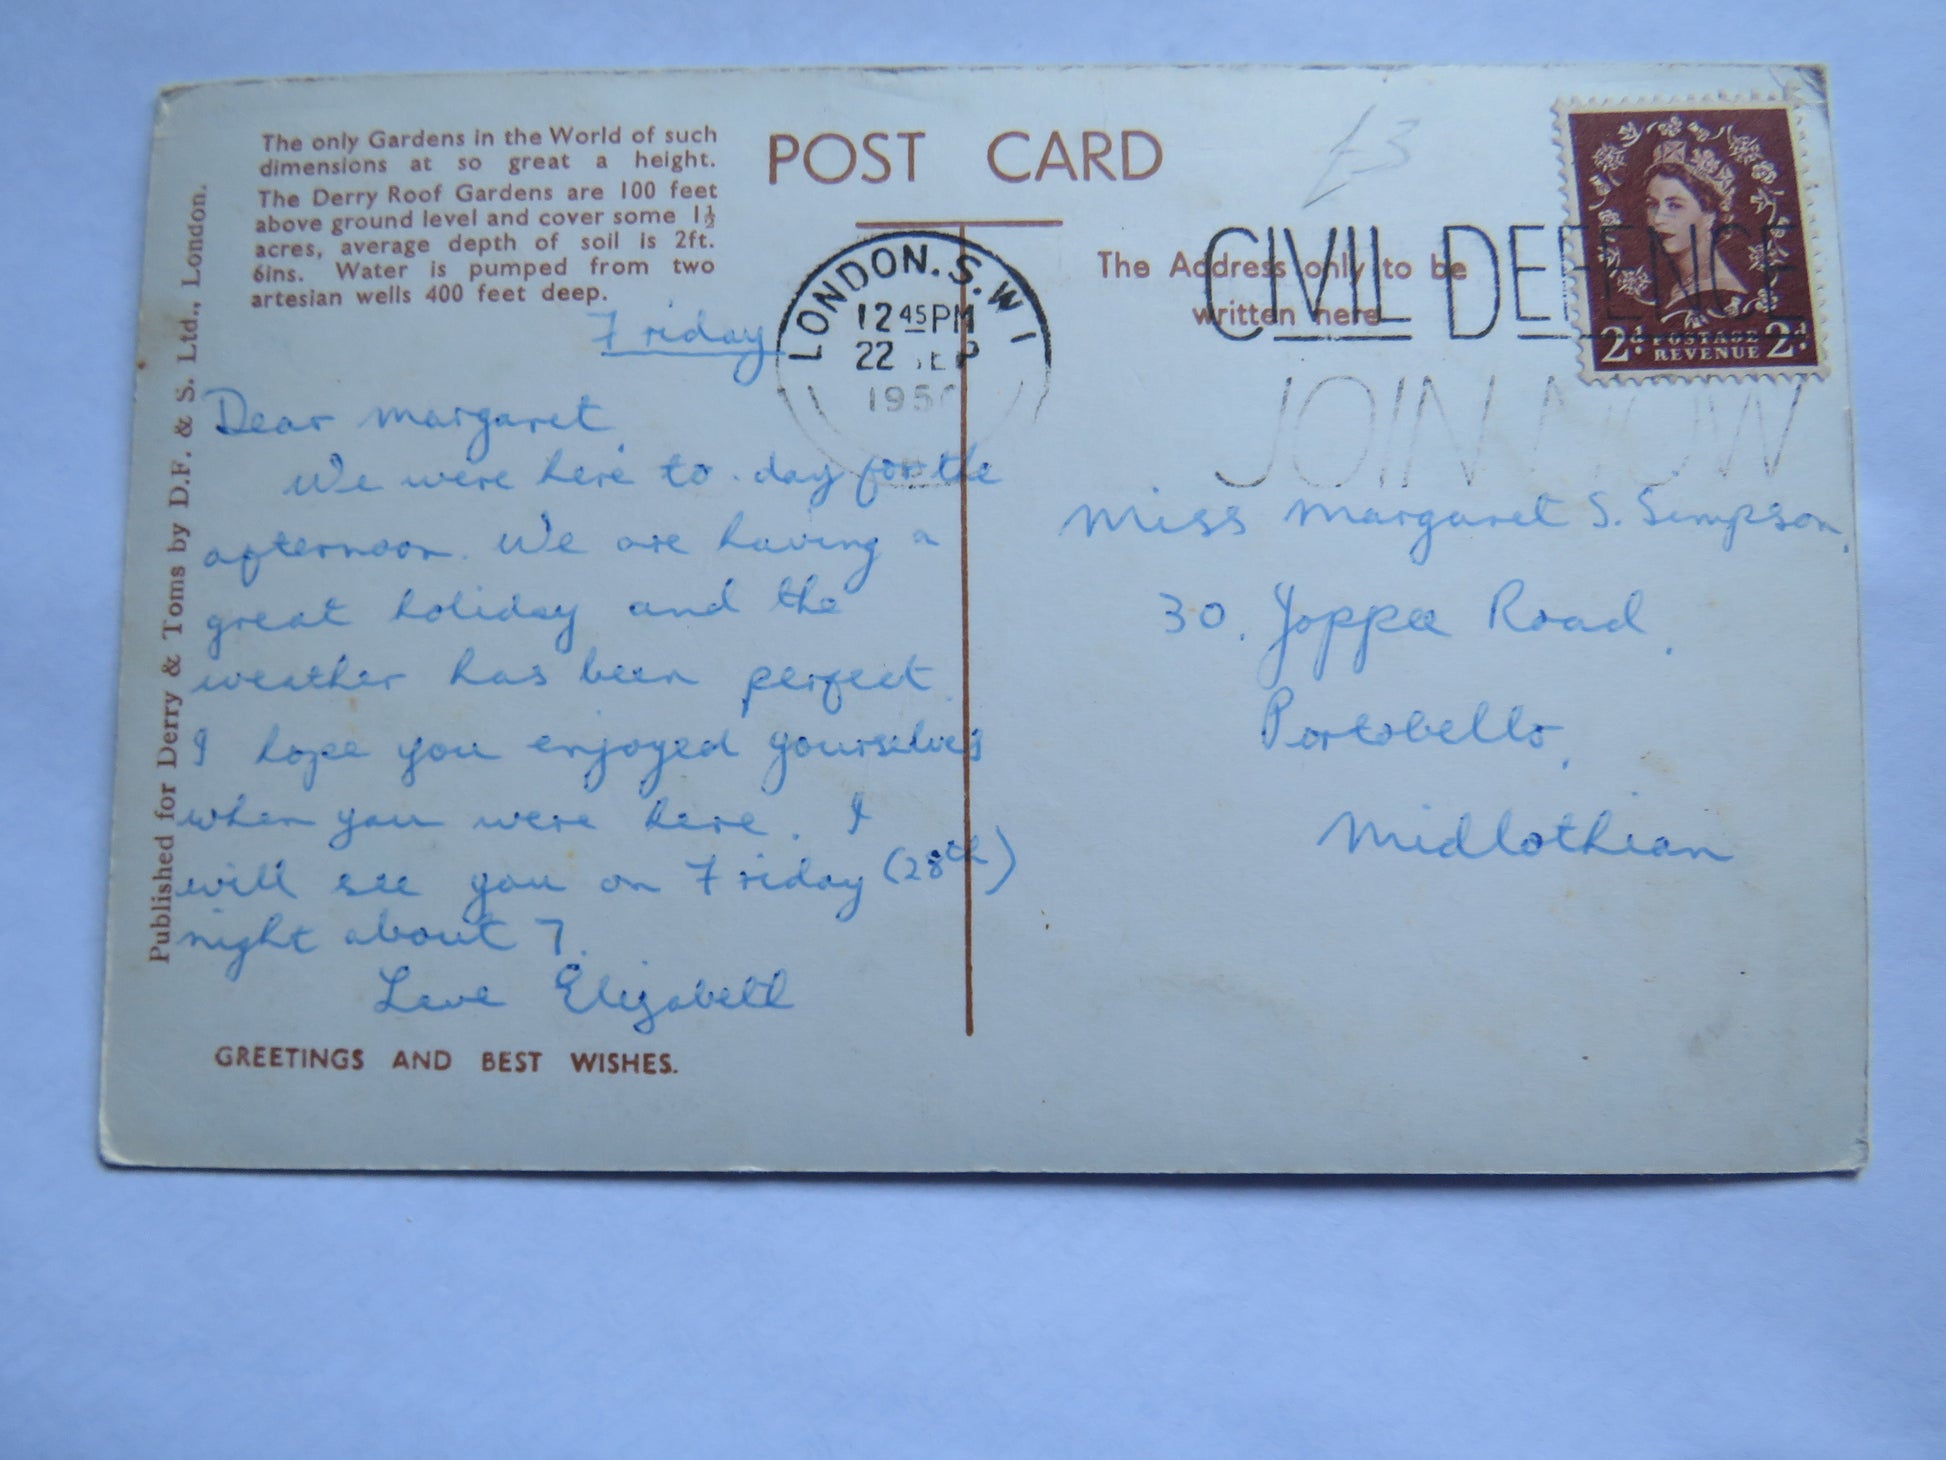 The only Gardens in the World of such
dimensions at so great a height.
The Derry Roof Gardens are 100 feet
above ground level and cover some 1½
acres, average depth of soil is 2ft.
6ins. Water is pumped from two
artesian wells 400 feet deep.
Published for Derry & Toms by D.F. & S. Ltd., London.
POST CARD
£3
The Address only to be
written here
LONDON. S.W 1
12 45 PM
22 SEP
195
CIVIL DEFENCE
JOIN NOW
2d. POSTAGE 2d.
REVENUE
Friday
Dear Margaret,
We were here to-day for the
afternoon. We are having a
great holiday and the
weather has been perfect.
I hope you enjoyed yourselves
when you were here. I
will see you on Friday (28th)
night about 7.
Love Elizabeth
GREETINGS AND BEST WISHES.
Miss Margaret S. Simpson,
30, Joppa Road,
Portobello,
Midlothian